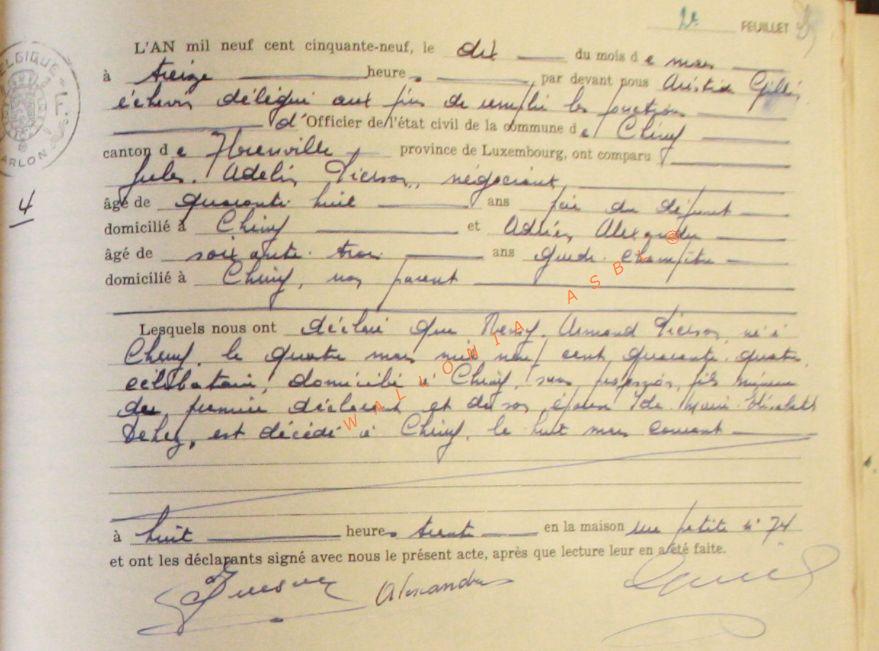 2e FEUILLET
BELGIQUE
ARLON
4
L'AN mil neuf cent cinquante-neuf, le dix du mois de mars
à treize heures, par devant nous Aristide
échevin délégué aux fins de remplir les fonctions
d'Officier de l'état civil de la commune de Chiny
canton de Florenville, province de Luxembourg, ont comparu
Jules, Adelin Pierson, négociant,
âgé de quarante huit ans père du défunt
domicilié à Chiny et Adrien Alexandre
âgé de soixante-trois ans garde-champêtre
domicilié à Chiny, non parent
Lesquels nous ont déclaré que Armand Pierson, né à
Chiny, le quatre mars mil neuf cent quarante-quatre,
célibataire, domicilié à Chiny, sans profession, fils mineur
du premier déclarant et de son épouse Marie Elisabeth
Dehez, est décédé à Chiny, le huit mars courant
à huit heures trente en la maison rue petite n° 74
et ont les déclarants signé avec nous le présent acte, après que lecture leur en a été faite.
Pierson Alexandre
WALLONIA ASBL ®